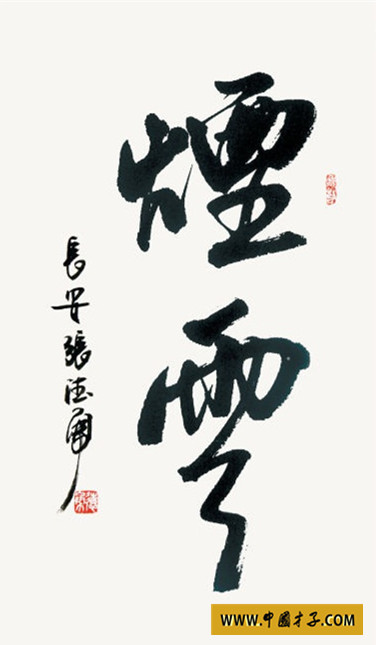 煙雲
長安張德
www.中國才子.COM